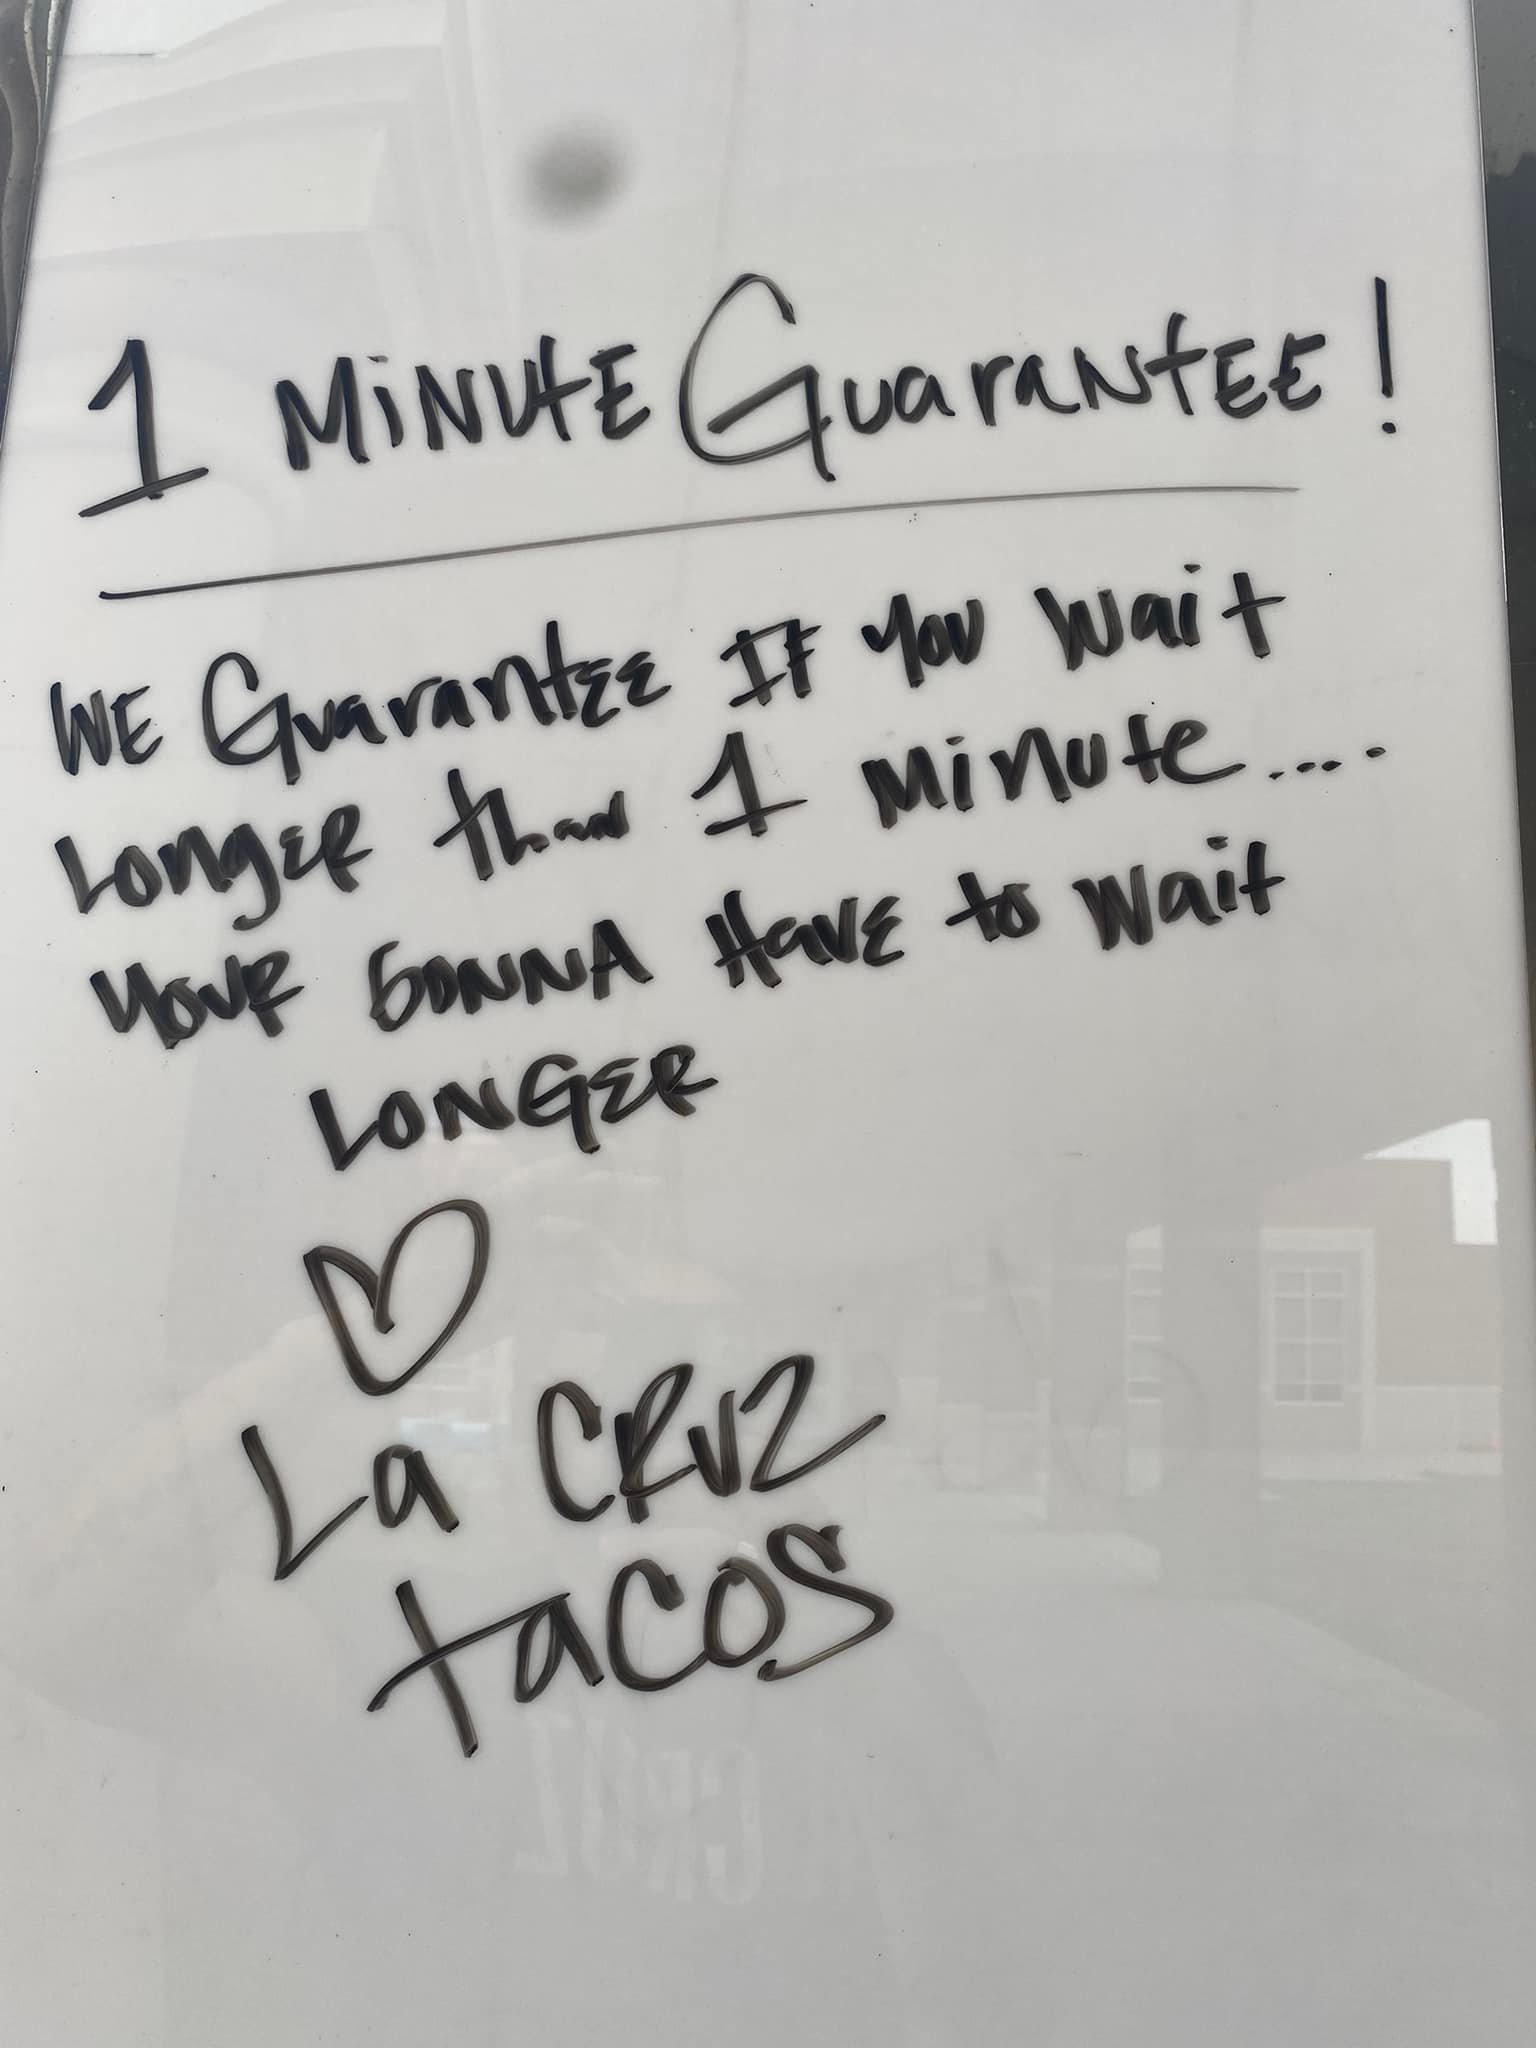 1 MiNUtE GuaraNtEE!
WE GuarantEE IF You Wait
LongER than 1 Minute....
YOUR GONNA HavE to Wait
LONGER
La CRUZ
tacos
CRUZ